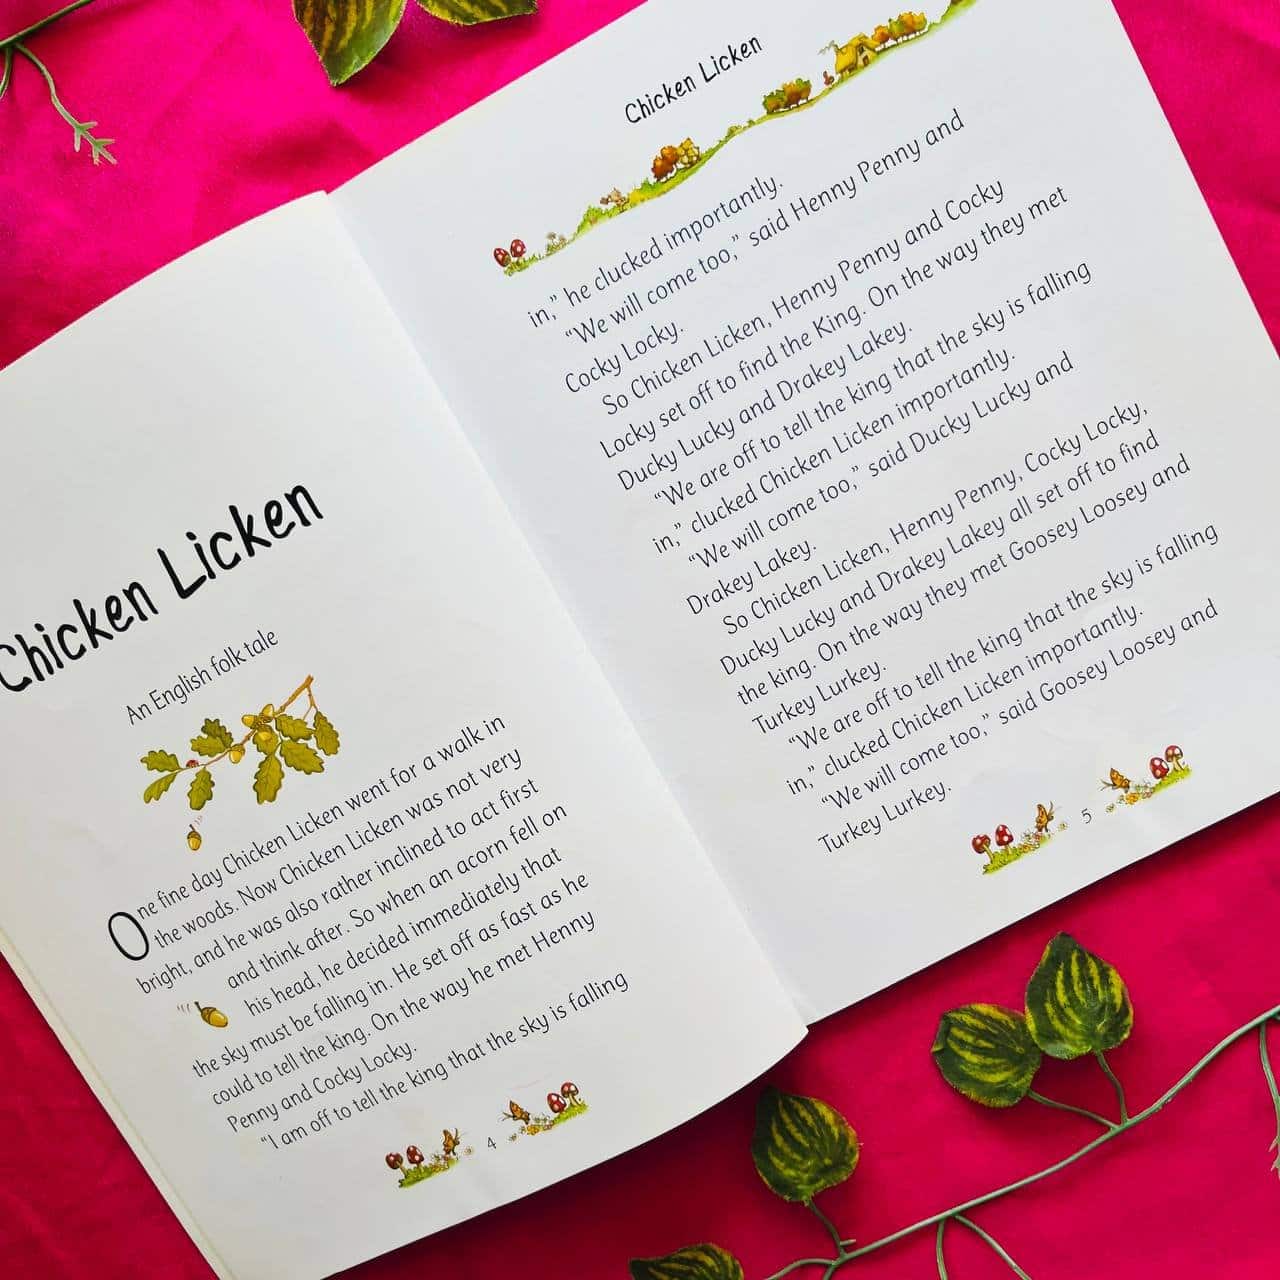 Chicken Licken
An English folk tale
One fine day Chicken Licken went for a walk in
the woods. Now Chicken Licken was not very
bright, and he was also rather inclined to act first
and think after. So when an acorn fell on
his head, he decided immediately that
the sky must be falling in. He set off as fast as he
could to tell the king. On the way he met Henny
Penny and Cocky Locky.
“I am off to tell the king that the sky is falling
4
Chicken Licken
in,” he clucked importantly.
“We will come too,” said Henny Penny and
Cocky Locky.
So Chicken Licken, Henny Penny and Cocky
Locky set off to find the King. On the way they met
Ducky Lucky and Drakey Lakey.
“We are off to tell the king that the sky is falling
in,” clucked Chicken Licken importantly.
“We will come too,” said Ducky Lucky and
Drakey Lakey.
So Chicken Licken, Henny Penny, Cocky Locky,
Ducky Lucky and Drakey Lakey all set off to find
the king. On the way they met Goosey Loosey and
Turkey Lurkey.
“We are off to tell the king that the sky is falling
in,” clucked Chicken Licken importantly.
“We will come too,” said Goosey Loosey and
Turkey Lurkey.
5